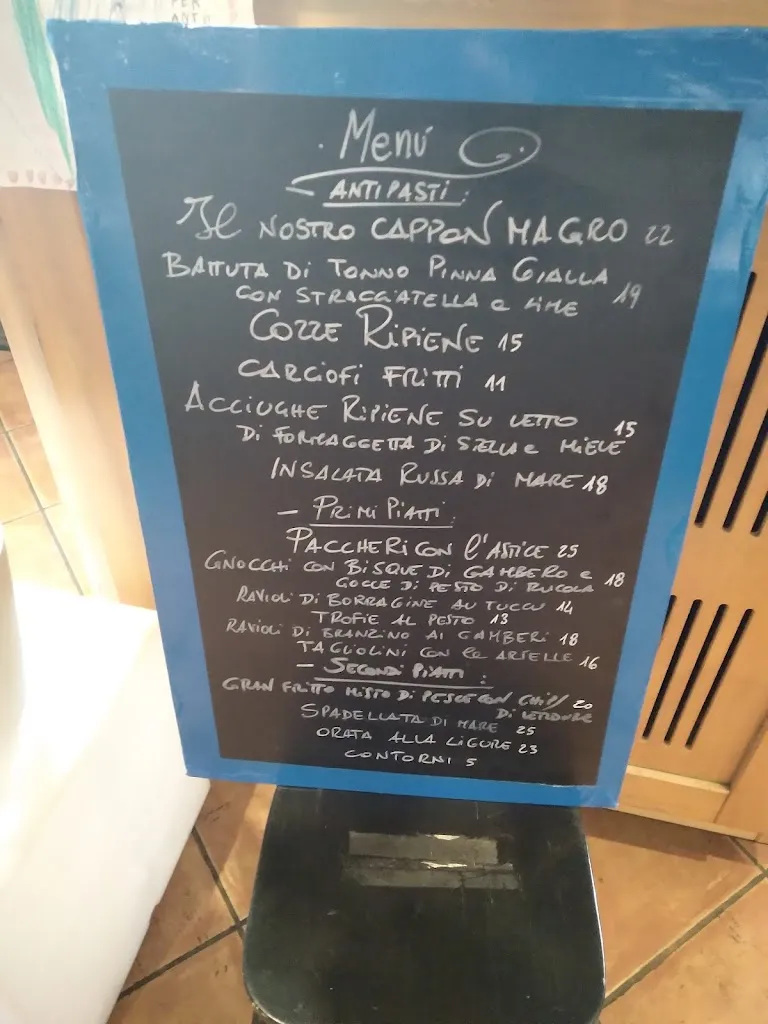 PER
Menú
ANTIPASTI:
Il NOSTRO CAPPON MAGRO 22
BATTUTA Di TONNO PINNA GIALLA
CON STRACCIATELLA e LIME 19
COZZE RIPIENE 15
CARCIOFi FRITTI 11
ACCIUGHE RIPIENE SU LETTO
Di FORMAGGETTA Di STELLA e MIELE 15
INSALATA RUSSA Di MARE 18
- PRIMI PIATTI:
PACCHERI CON l'ASTICE 25
GNOCCHI CON BISQUE DI GAMBERO e
GOCCE DI PESTO DI RUCOLA 18
RAVIOLI DI BORRAGINE AU TUCCU 14
TROFIE AL PESTO 13
RAVIOLI DI BRANZINO AI GAMBERI 18
TAGLIOLINI CON le ARSELLE 16
- SECONDI PIATTI:
GRAN FRITTO MISTO DI PESCE CON CHIPS 20
DI VERDURE
SPADELLATA DI MARE 25
ORATA ALLA LIGURE 23
CONTORNI 5